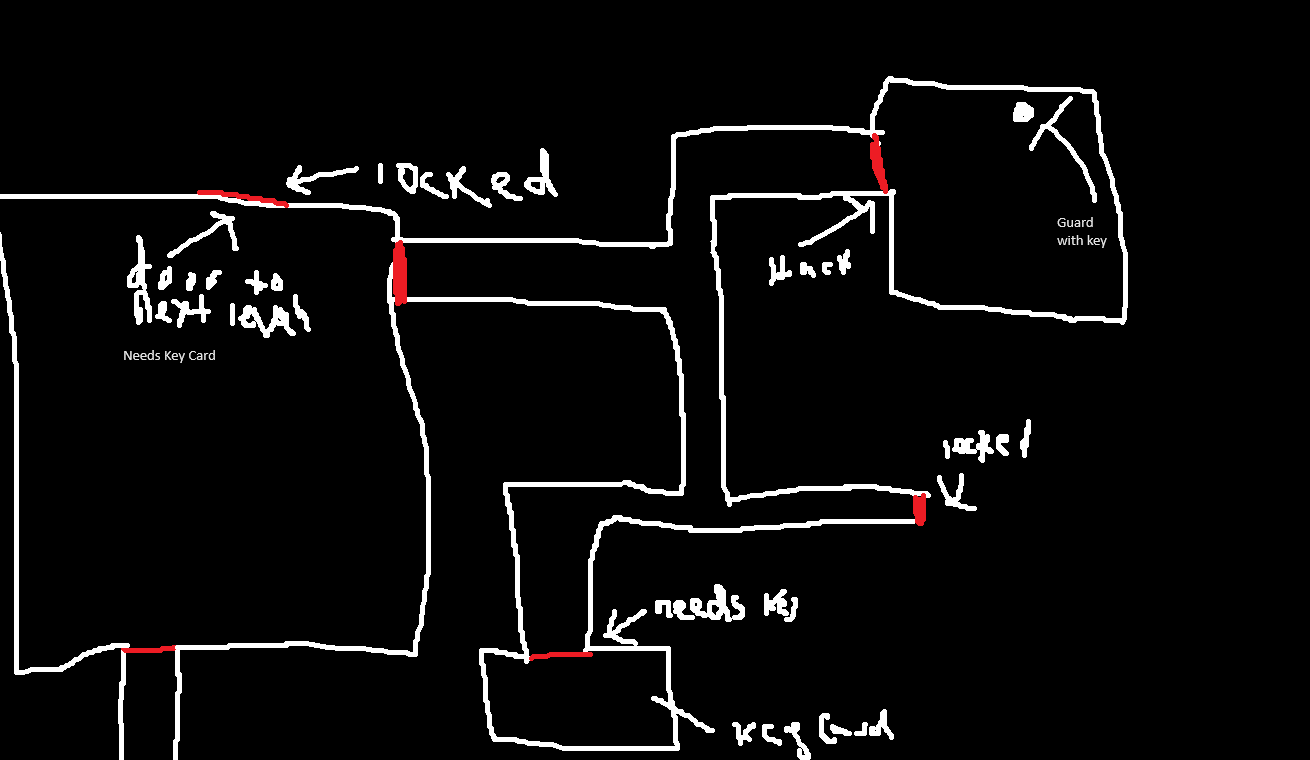 locked
door to
next level
Needs Key Card
Guard
with key
locked
needs key
key card